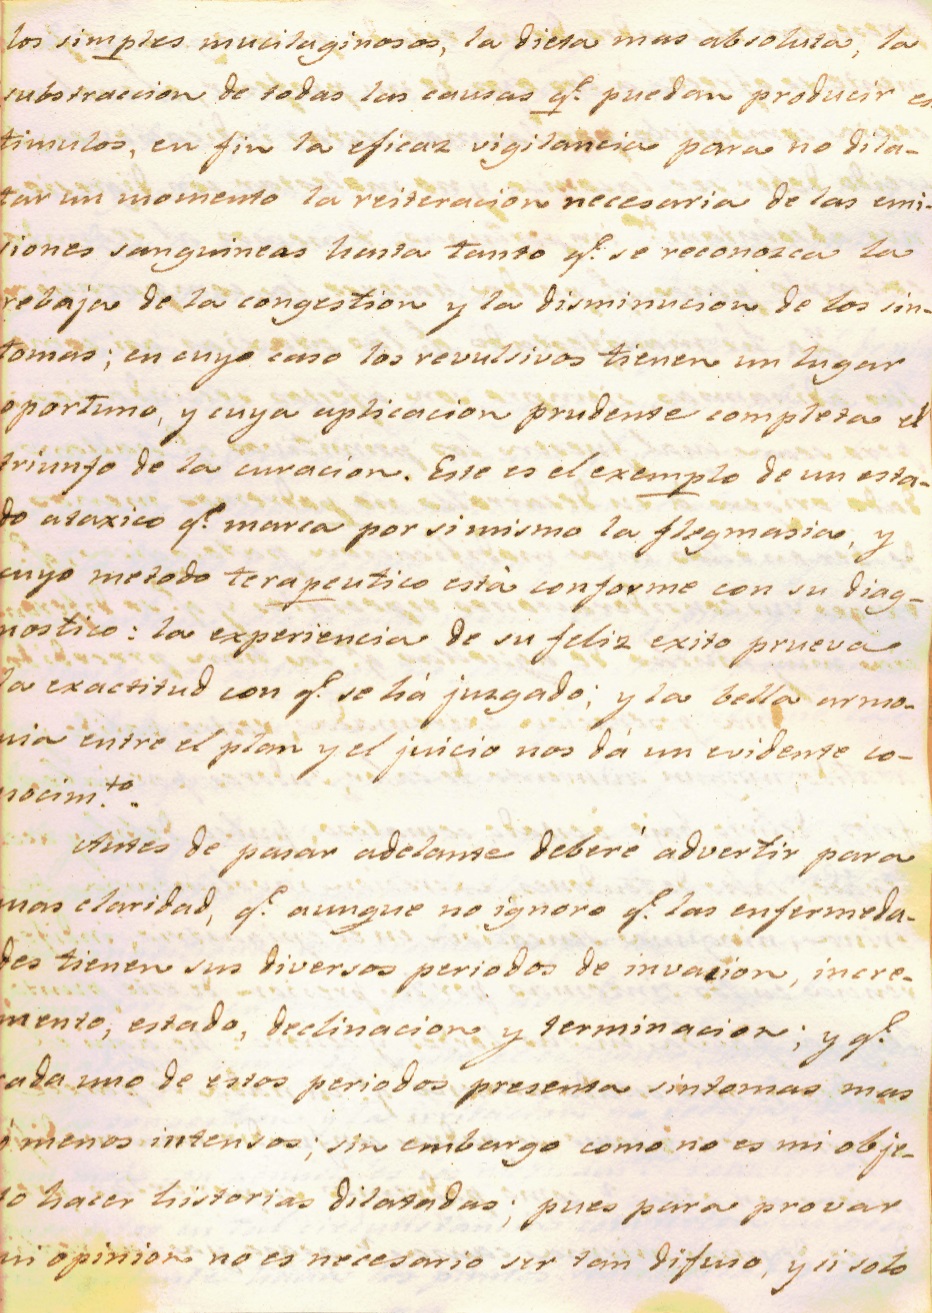 los simples mucilaginosos, la dieta mas absoluta, la
substraccion de todas las causas q.e puedan producir es
timulos, en fin la eficaz vigilancia para no dila-
tar un momento la reiteracion necesaria de las emi-
siones sanguineas hasta tanto q.e se reconozca la
rebaja de la congestion y la disminucion de los sin-
tomas; en cuyo caso los revulsivos tienen un lugar
oportuno, y cuya aplicacion prudente completa el
triunfo de la curacion. Este es el exemplo de un esta-
do ataxico q.e marca por si mismo la flegmasia, y
cuyo metodo terapeutico està conforme con su diag-
nostico: la experiencia de su feliz exito prueva
la exactitud con q.e se há juzgado; y la bella armo-
nia entre el plan y el juicio nos dá un evidente co-
nocim.to.
Antes de pasar adelante deberé advertir para
mas claridad, q.e aunque no ignoro q.e las enfermeda-
des tienen sus diversos periodos de invacion, incre-
mento, estado, declinacion y terminacion; y q.e
cada uno de estos periodos presenta sintomas mas
ó menos intensos; sin embargo como no es mi obje-
to hacer historias dilatadas; pues para provar
mi opinion no es necesario ser tan difuso, y si solo